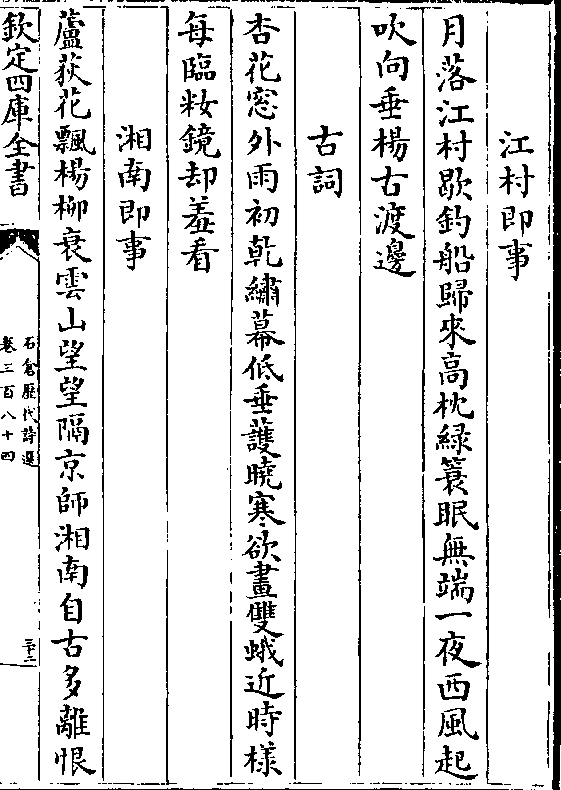 江村即事
月落江村歇釣船歸來高枕綠簑眠無端一夜西風起
吹向垂楊古渡邊
古詞
杏花窓外雨初乾繡幕低垂䕶曉寒欲畫雙蛾近時様
每臨粧鏡却羞看
湘南即事
蘆荻花飄楊柳衰雲山望望隔京師湘南自古多離恨
欽定四庫全書
石倉歷代詩選
卷三百八十四
三十二